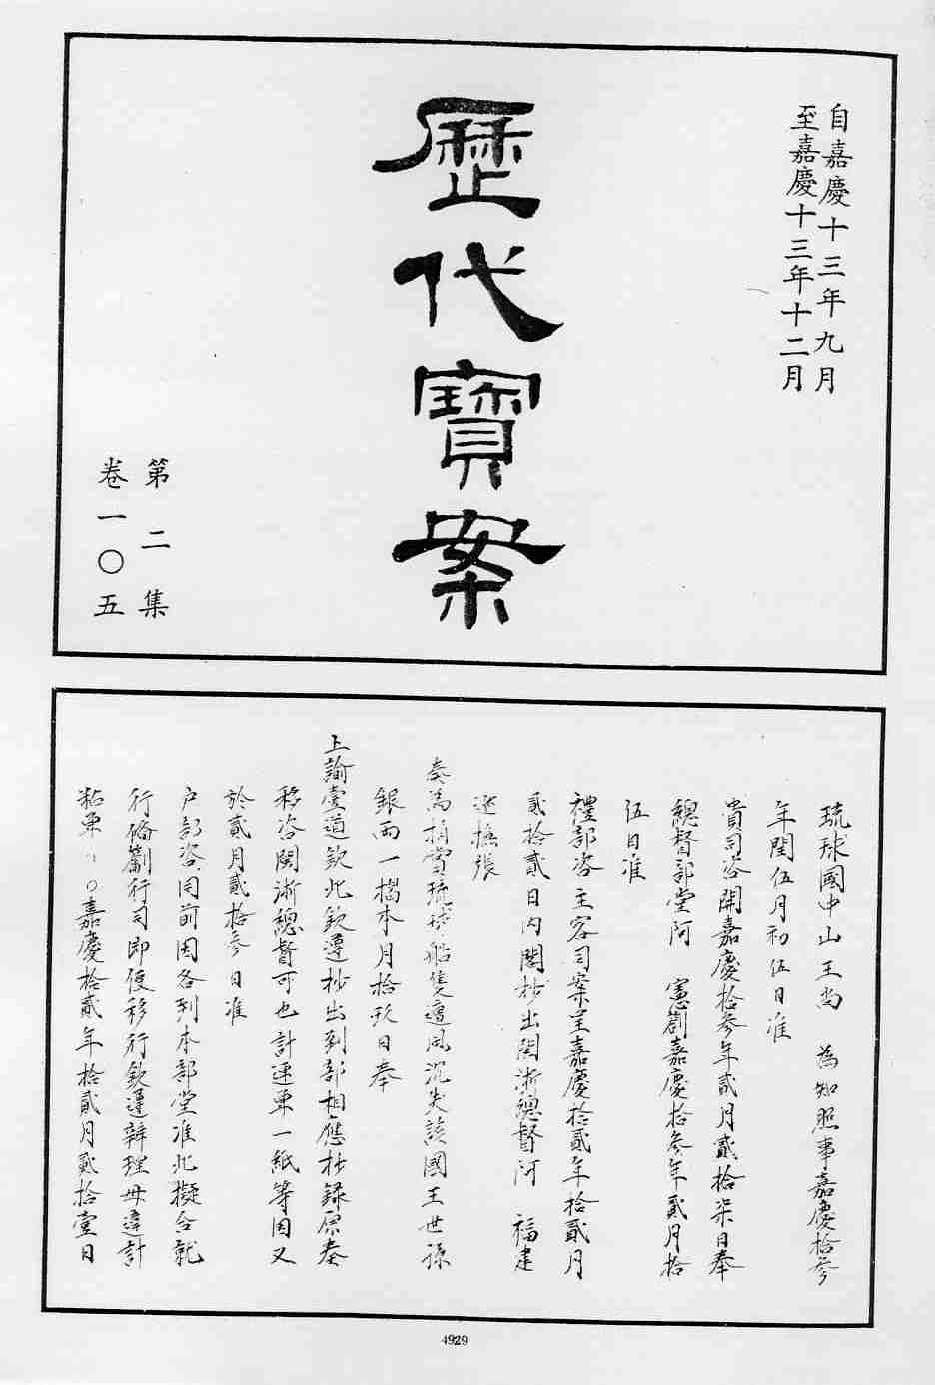 自嘉慶十三年九月
至嘉慶十三年十二月
歷代寶案
第二集
卷一〇五
琉球國中山王尚 為知照事嘉慶拾參
年閏伍月初伍日准
貴司咨開嘉慶拾參年貳月貳拾柒日奉
總督部堂阿 憲劄嘉慶拾參年貳月拾
伍日准
禮部咨主客司案呈嘉慶拾貳年拾貳月
貳拾貳日內閣抄出閩浙總督阿 福建
巡撫張
奏為捐賞琉球船隻遭風沉失該國王世孫
銀兩一摺本月拾玖日奉
上諭壹道欽此欽遵抄出到部相應抄錄原奏
移咨閩浙總督可也計連東一紙等因又
於貳月貳拾參日准
戶部咨同前因各到本部堂准此擬合就
行備劄行司即便移行欽遵辦理毋違計
粘東 ○嘉慶拾貳年拾貳月貳拾壹日
4929